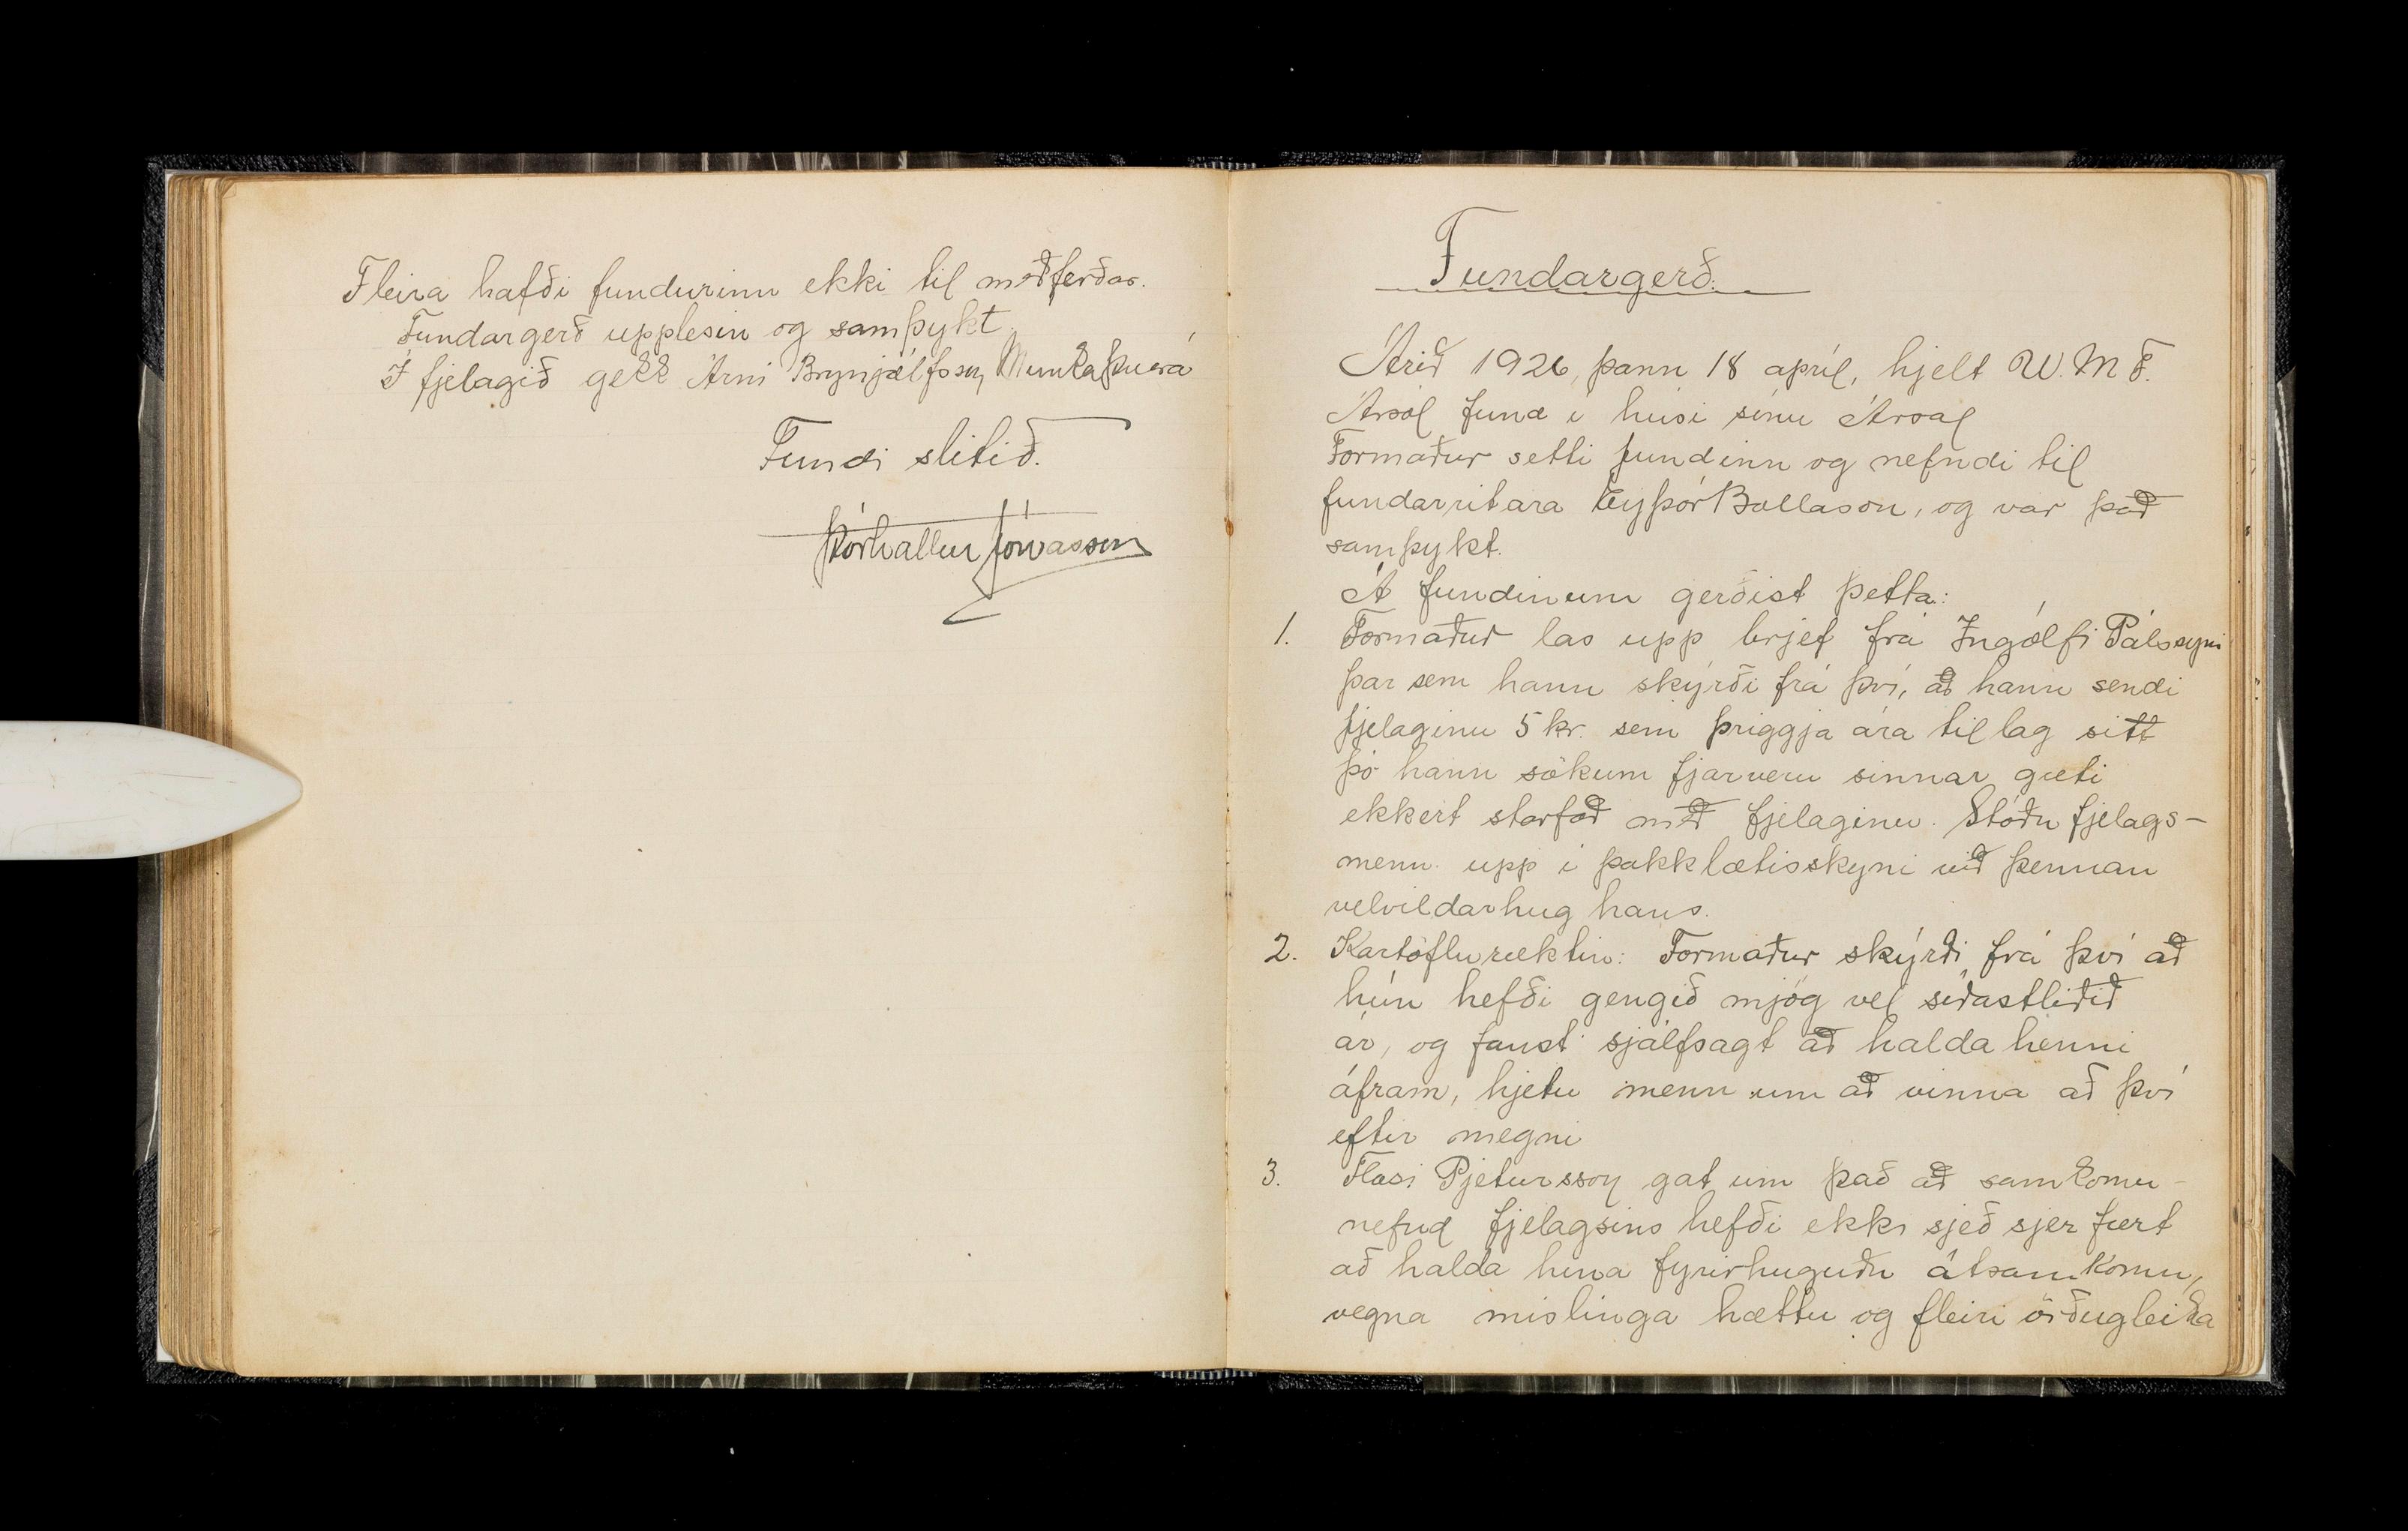 Fleira hafði fundurinn ekki til meðferðar.
Fundargerð upplesin og samþykt.
Í fjelagið gekk Árni Brynjólfsson, Munkaþverá
Fundi slitið.
Þórhallur Jónasson
Fundargerð.
Árið 1926, þann 18 apríl, hjelt U.M.F.
Ársól fund í húsi sínu Ársal
Formaður setti fundinn og nefndi til
fundarritara Eyþór Bollason, og var það
samþykt.
Á fundinum gerðist þetta:
1. Formaður las upp brjef frá Ingólfi Pálssyni
þar sem hann skýrði frá því, að hann sendi
fjelaginu 5 kr. sem þriggja ára tillag sitt
þó hann sökum fjarveru sinnar gæti
ekkert starfað með fjelaginu. Stóðu fjelags-
menn upp í þakklætisskyni við þennan
velvildarhug hans.
2. Kartöfluræktin: Formaður skýrði frá því að
hún hefði gengið mjög vel síðastliðið
ár, og fanst sjálfsagt að halda henni
áfram, hjetu menn um að vinna að því
eftir megni
3. Flosi Pjetursson gat um það að samkomu-
nefnd fjelagsins hefði ekki sjeð sjer fært
að halda hina fyrirhuguðu átsamkomu,
vegna mislinga hættu og fleiri örðugleika